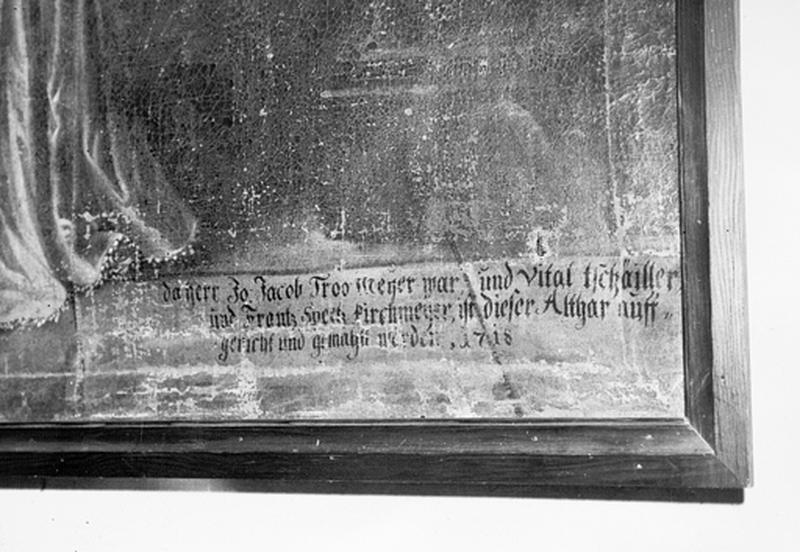 da herr Jo Jacob Tros Meyer war, und Vital tschäiller
und Frantz Speck kirchmeyer, ist dieser Althar auff„
gericht und gemahlt worden, 1718